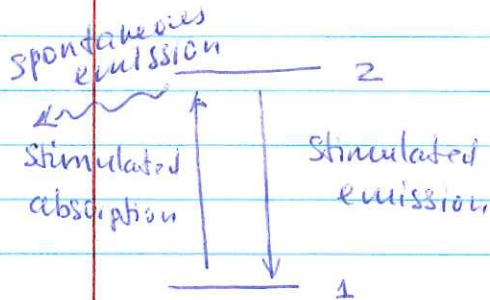 spontaneous
emission
2
Stimulated
absorption
Stimulated
emission
1